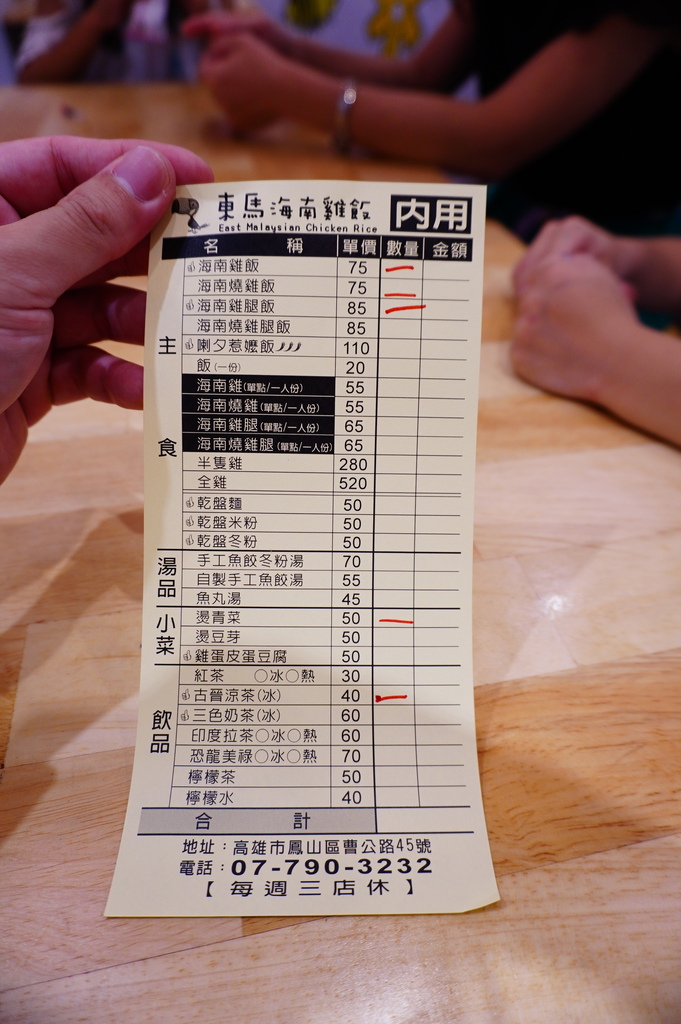 東馬海南雞飯 內用
East Malaysian Chicken Rice
名 稱 單價 數量 金額
主食
海南雞飯 75 一
海南燒雞飯 75 一
海南雞腿飯 85 一
海南燒雞腿飯 85
喇夕惹嬤飯 110
飯(一份) 20
海南雞(單點/一人份) 55
海南燒雞(單點/一人份) 55
海南雞腿(單點/一人份) 65
海南燒雞腿(單點/一人份) 65
半隻雞 280
全雞 520
乾盤麵 50
乾盤米粉 50
乾盤冬粉 50
湯品
手工魚餃冬粉湯 70
自製手工魚餃湯 55
魚丸湯 45
小菜
燙青菜 50 一
燙豆芽 50
雞蛋皮蛋豆腐 50
飲品
紅茶 ○冰○熱 30
古晉涼茶(冰) 40 一
三色奶茶(冰) 60
印度拉茶○冰○熱 60
恐龍美祿○冰○熱 70
檸檬茶 50
檸檬水 40
合 計
地址：高雄市鳳山區曹公路45號
電話：07-790-3232
【每週三店休】